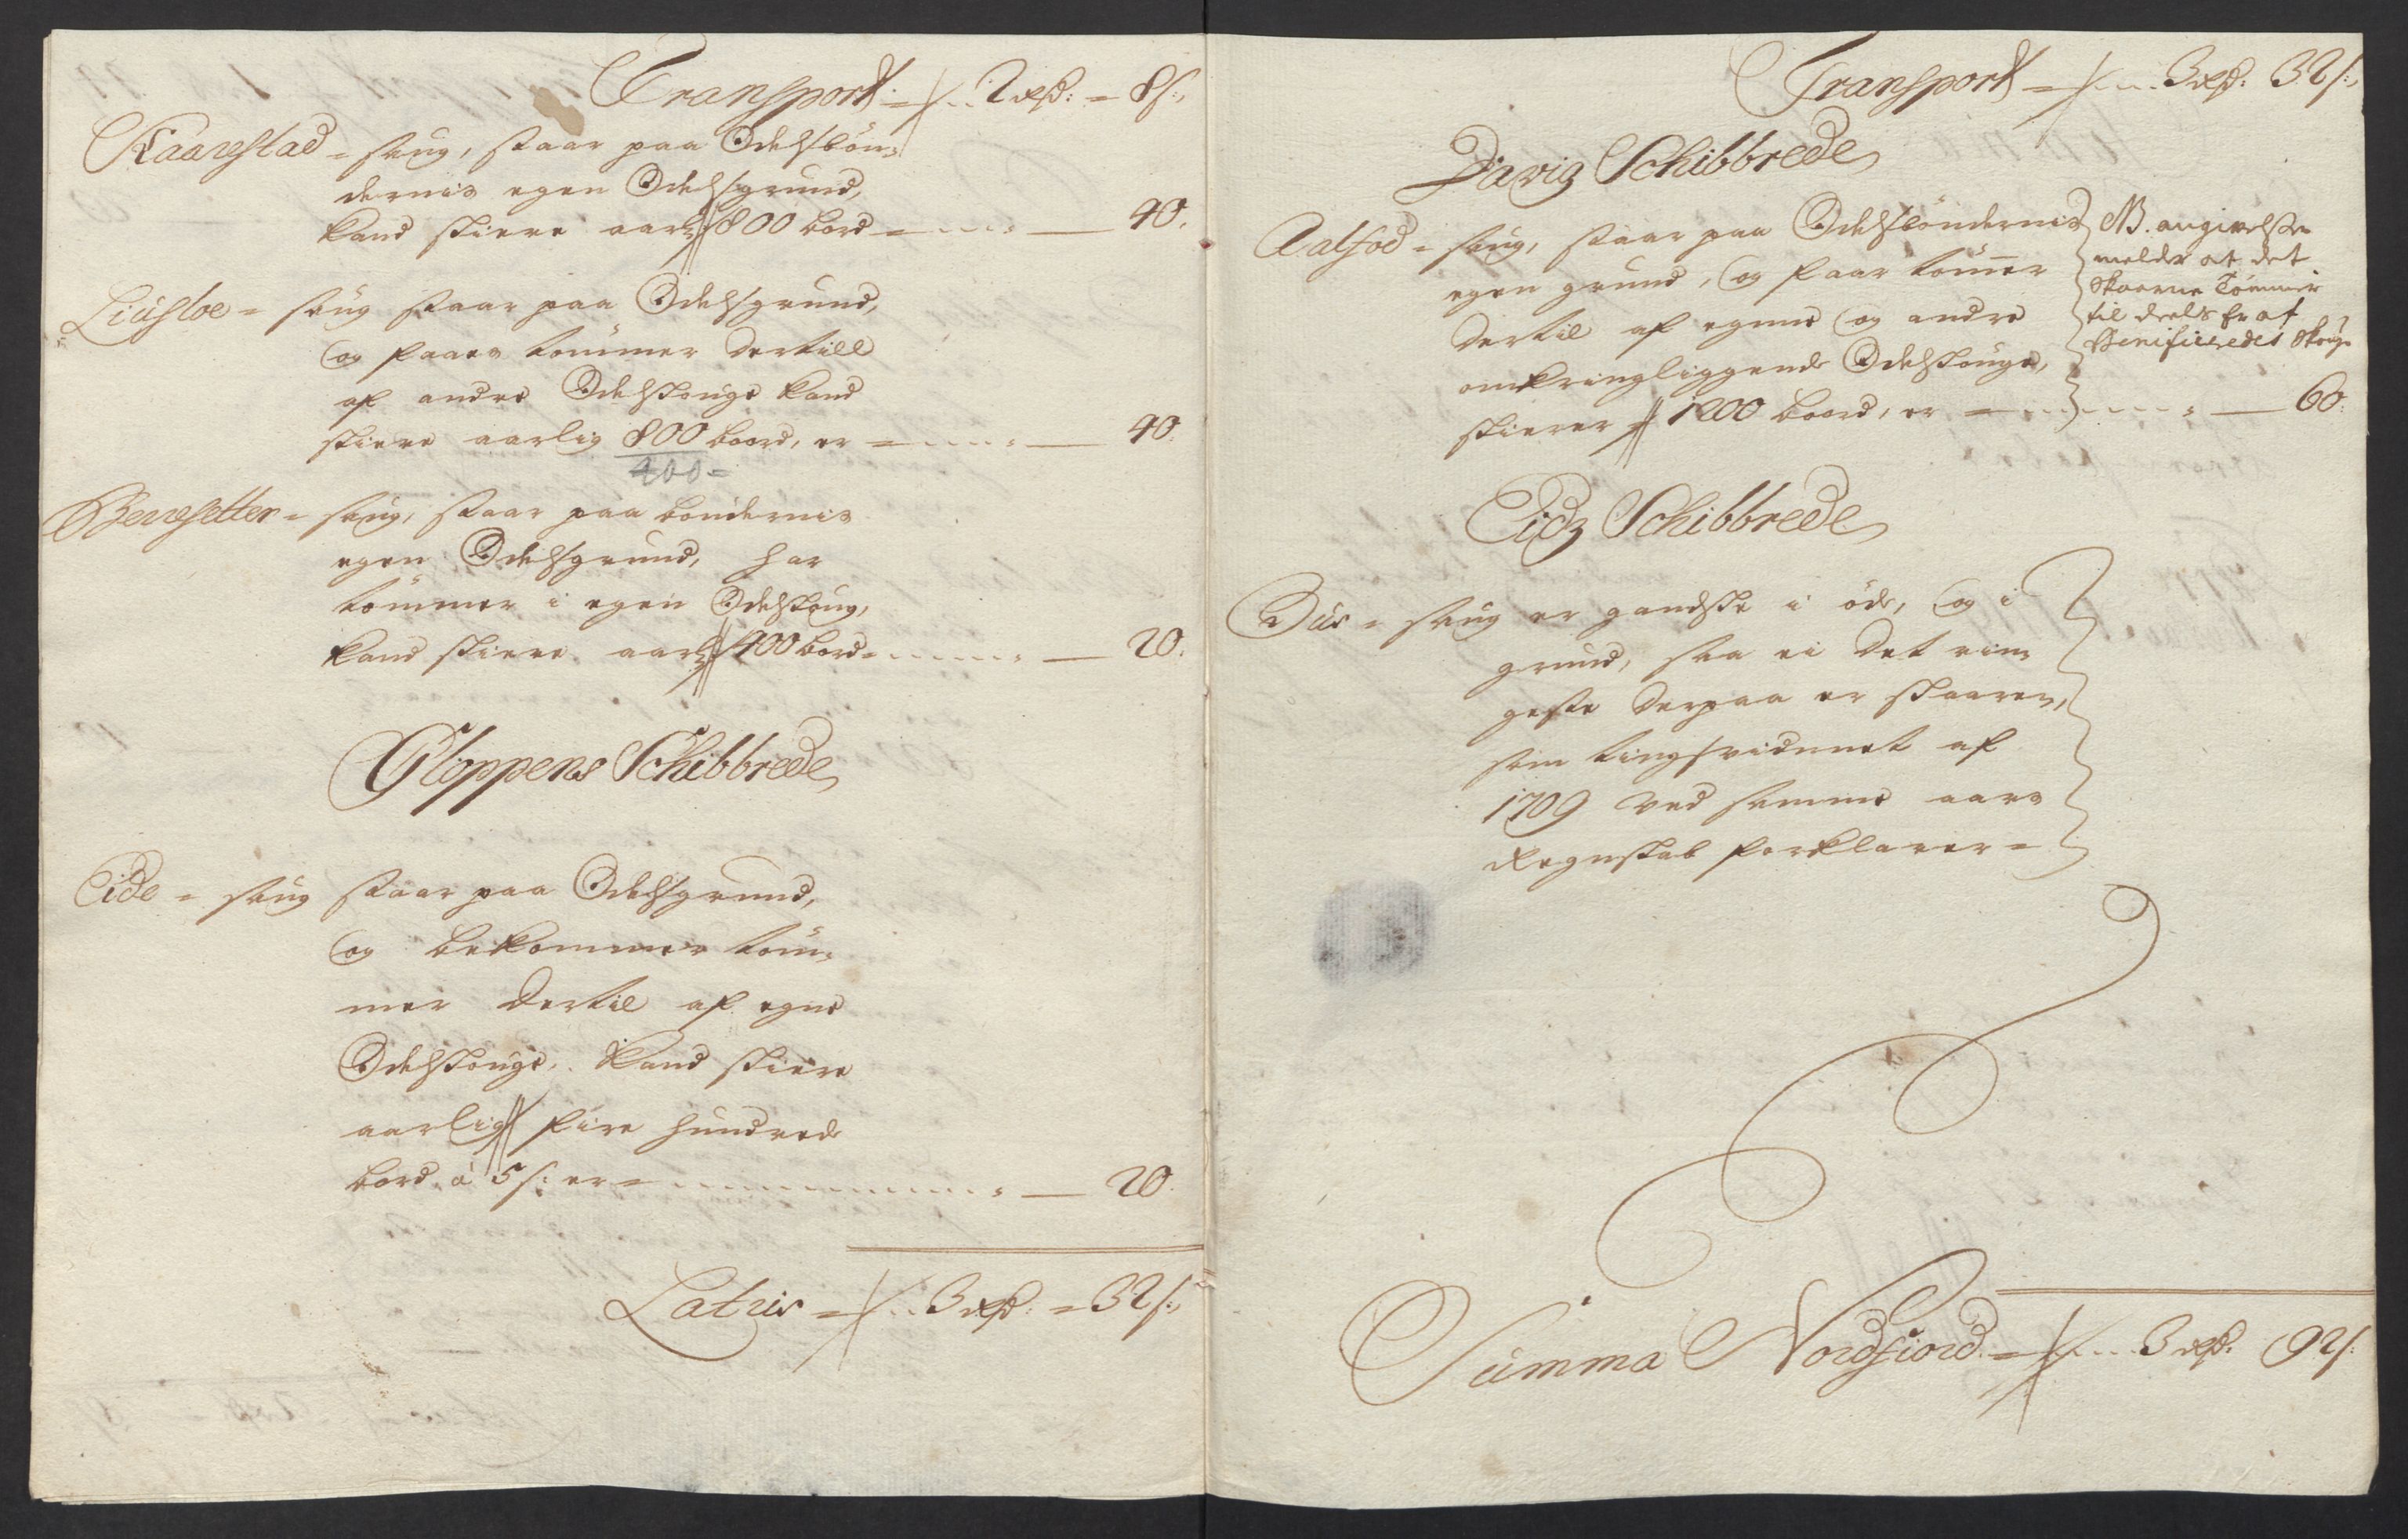 Transport = 2 rdr: = 8 s:
Kaarestad = saug, staar paa Odelsbøn=
dernis egen Odelsgrund,
kand skiere aarl: 800 bord = 40.
Liusloe = saug staar paa Odelsgrund,
og faaes tømmer dertill
af andre Odelskouge kand
skiere aarlig 800 boord, er = 40.
400=
Berresetter = saug, staar paa bøndernis
egen Odelsgrund, har
tømmer i egen Odelskoug,
kand skiere aarl: 400 bord = 20.
Gloppens Schibbrede
Eide = saug staar paa Odelsgrund,
og bekommer tøm=
mer dertil af egne
Odelskouge. Kand skiere
aarlig fire hundrede
bord à 5 s: er = 20.
Latris = 3 rdr: = 32 s:
Transport = 3 rdr: 32 s:
Daviz Schibbrede
Aalfod = saug, staar paa Odelsbøndernis
egen grund, og faar tømer
dertil af egne og andre
omkringliggende Odelskouge,
skierer 1200 boord, er = 60.
NB. angivelsen
melder at det
skaarne Tømmer
til deels er af
Benificeredes Skouge
Eidz Schibbrede
Dus = saug er gandske i øde, og i
grund, saa ei det rin=
geste derpaa er skaaren,
som tingsvidnet af
1709 ved samme aars
Regnskab forklarer =
Summa Nordfiord = 3 rdr. 92 s: